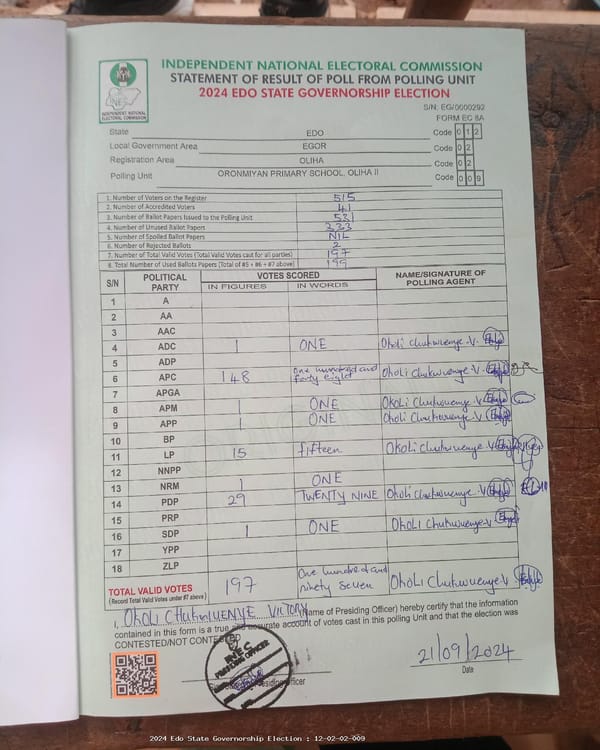 INDEPENDENT NATIONAL ELECTORAL COMMISSION
STATEMENT OF RESULT OF POLL FROM POLLING UNIT
2024 EDO STATE GOVERNORSHIP ELECTION
INDEPENDENT NATIONAL ELECTORAL COMMISSION
S/N: EG/0000292
FORM EC 8A
State EDO Code 0 1 2
Local Government Area EGOR Code 0 2
Registration Area OLIHA Code 0 2
Polling Unit ORONMIYAN PRIMARY SCHOOL, OLIHA II Code 0 0 9
1. Number of Voters on the Register 515
2. Number of Accredited Voters 41
3. Number of Ballot Papers Issued to the Polling Unit 531
4. Number of Unused Ballot Papers 333
5. Number of Spoiled Ballot Papers NIL
6. Number of Rejected Ballots 2
7. Number of Total Valid Votes (Total Valid Votes cast for all parties) 197
8. Total Number of Used Ballots Papers (Total of #5 + #6 + #7 above) 199
S/N POLITICAL PARTY VOTES SCORED NAME/SIGNATURE OF POLLING AGENT
IN FIGURES IN WORDS
1 A
2 AA
3 AAC
4 ADC 1 ONE Okoli Chukwuenye .V.
5 ADP
6 APC 148 One hundred and forty eight Okoli Chukwuenye .V.
7 APGA
8 APM 1 ONE Okoli Chukwuenye .V.
9 APP 1 ONE Okoli Chukwuenye .V.
10 BP
11 LP 15 fifteen Okoli Chukwuenye .V
12 NNPP
13 NRM 1 ONE
14 PDP 29 TWENTY NINE Okoli Chukwuenye .V
15 PRP
16 SDP 1 ONE Okoli Chukwuenye .V
17 YPP
18 ZLP
TOTAL VALID VOTES 197 One hundred and ninety seven Okoli Chukwuenye V
(Record Total Valid Votes under #7 above)
I, OKOLI CHUKWUENYE VICTORY (Name of Presiding Officer) hereby certify that the information
contained in this form is a true and accurate account of votes cast in this polling Unit and that the election was
CONTESTED/NOT CONTESTED
INEC
PRESIDING OFFICER
21/09/2024
Date
2024 Edo State Governorship Election : 12-02-02-009